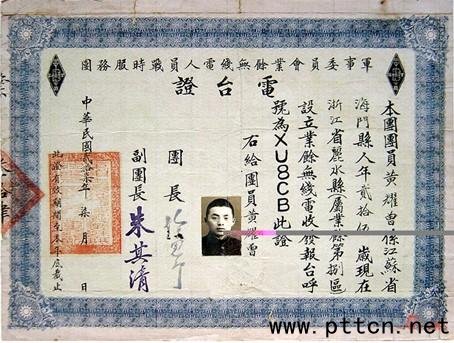 軍事委員會業餘無綫電人員戰時服務團
電台證
本團團員黃耀曾係江蘇省
海門縣人年貳拾伍歲現在
浙江省麗水縣屬業餘第捌區
設立業餘無綫電收發報台呼
號為XU8CB此證
右給團員黃耀曾
團長
副團長 朱其清
中華民國 年 柒月 日
此證有效期間至本年底截止
www.pttcn.net